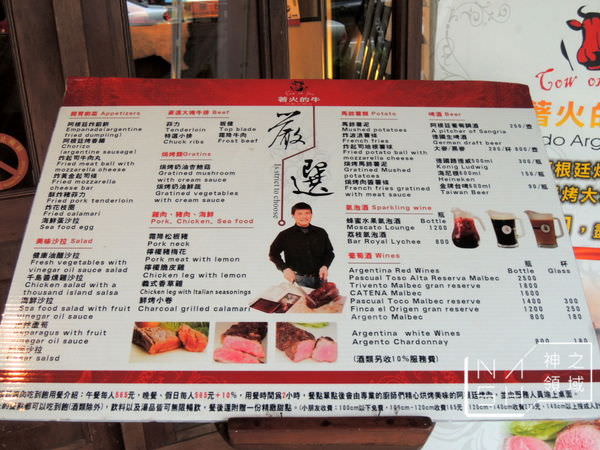 著火的牛
嚴選
Estrict choose
開胃前菜 Appetizers
阿根廷炸餡餅
Empanada(argentine
fried dumpling)
阿根廷烤香腸
Chorizo
(argentine sausage)
炸起司牛肉丸
Fried meat ball with
mozzarella cheese
炸黃金起司條
Fried mozzarella
cheese bar
酥炸豬菲力
Fried pork tenderloin
炸花枝圈
Fried calamari
海鮮蛋沙拉
Sea food egg
美味沙拉 Salad
健康油醋沙拉
Fresh vegetables with
vinegar oil sauce salad
千島醬燻雞沙拉
Chicken salad with a
thousand island salsa
海鮮沙拉
Sea food salad with fruit
vinegar oil sauce
paragus with fruit
vinegar oil sauce
沙拉
菲力
Tenderloin
特選小排
Chuck ribs
板腱
Top blade
霜降牛肉
Frost beef
焗烤類Gratins
焗烤奶油杏鮑菇
Gratined mushroom
with cream sauce
焗烤奶油鮮蔬
Gratined vegetables
with cream sauce
雞肉、豬肉、海鮮
Pork, Chicken, Sea food
霜降松板豬
Pork neck
檸檬豬梅花
Pork meat with lemon
檸檬嫩皮雞
Chicken leg with lemon
義式香草雞
Chicken leg with Italian seasonings
鮮烤小卷
Charcoal grilled calamari
馬鈴薯類 Potato
馬鈴薯泥
Mushed potatoes
炸波浪薯條
French fries
炸起司培根薯球
Fried potato ball with
mozzarella cheese
焗烤馬鈴薯泥
Gratined Mushed
potatoes
焗烤波浪薯條
French fries gratined
with meat sauce
氣泡酒 Sparkling wine
瓶
蜂蜜水果氣泡酒 Bottle
Moscato Lounge 1200
荔枝氣泡酒
Bar Royal Lychee 800
葡萄酒 Wines
瓶 杯
Argentina Red Wines Bottle Glass
Pascual Toso Alta Reserva Malbec 2500
Trivento Malbec gran reserve 1800
CATENA Malbec 1600
Pascual Toco Malbec reserve 1400 300
Finca el Origen gran reserve 1200 250
Argento Malbec 800 180
Argentina white Wines
Argento Chardonnay 800 180
(酒類另收10%服務費)
啤酒 Beer
阿根廷葡萄調酒 250/壺
A pitcher of Sangria
德國生啤酒
German draft beer
Kong Ludwig
海尼根500ml
Heineken
金牌台啤500ml
Taiwan Beer
Tow o
著火
do Arg
根廷
神之領域